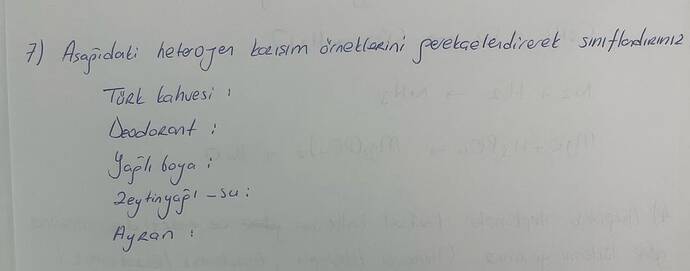 7) Aşağıdaki heterojen karışım örneklerini gerekçelendirerek sınıflandırınız
Türk kahvesi :
Deodorant :
Yağlı boya :
Zeytinyağı - su :
Ayran :